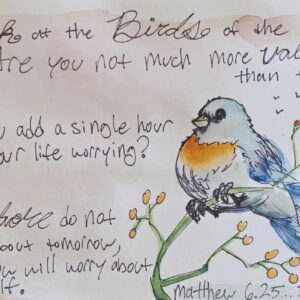 at the Birds of the
Are you not much more
than
add a single hour
your life worrying?
do not
about tomorrow,
will worry about
matthew 6.25...